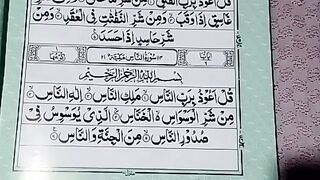 قُلْ اَعُوْذُ بِرَبِّ الْفَلَقِ
غَاسِقٍ اِذَا وَقَبَ وَمِنْ شَرِّ النَّفّٰثٰتِ فِي الْعُقَدِ وَمِنْ
شَرِّ حَاسِدٍ اِذَا حَسَدَ
سُوْرَةُ النَّاسِ
بِسْمِ اللّٰهِ الرَّحْمٰنِ الرَّحِيْمِ
قُلْ اَعُوْذُ بِرَبِّ النَّاسِ مَلِكِ النَّاسِ اِلٰهِ النَّاسِ
مِنْ شَرِّ الْوَسْوَاسِ الْخَنَّاسِ الَّذِيْ يُوَسْوِسُ فِيْ
صُدُوْرِ النَّاسِ مِنَ الْجِنَّةِ وَالنَّاسِ